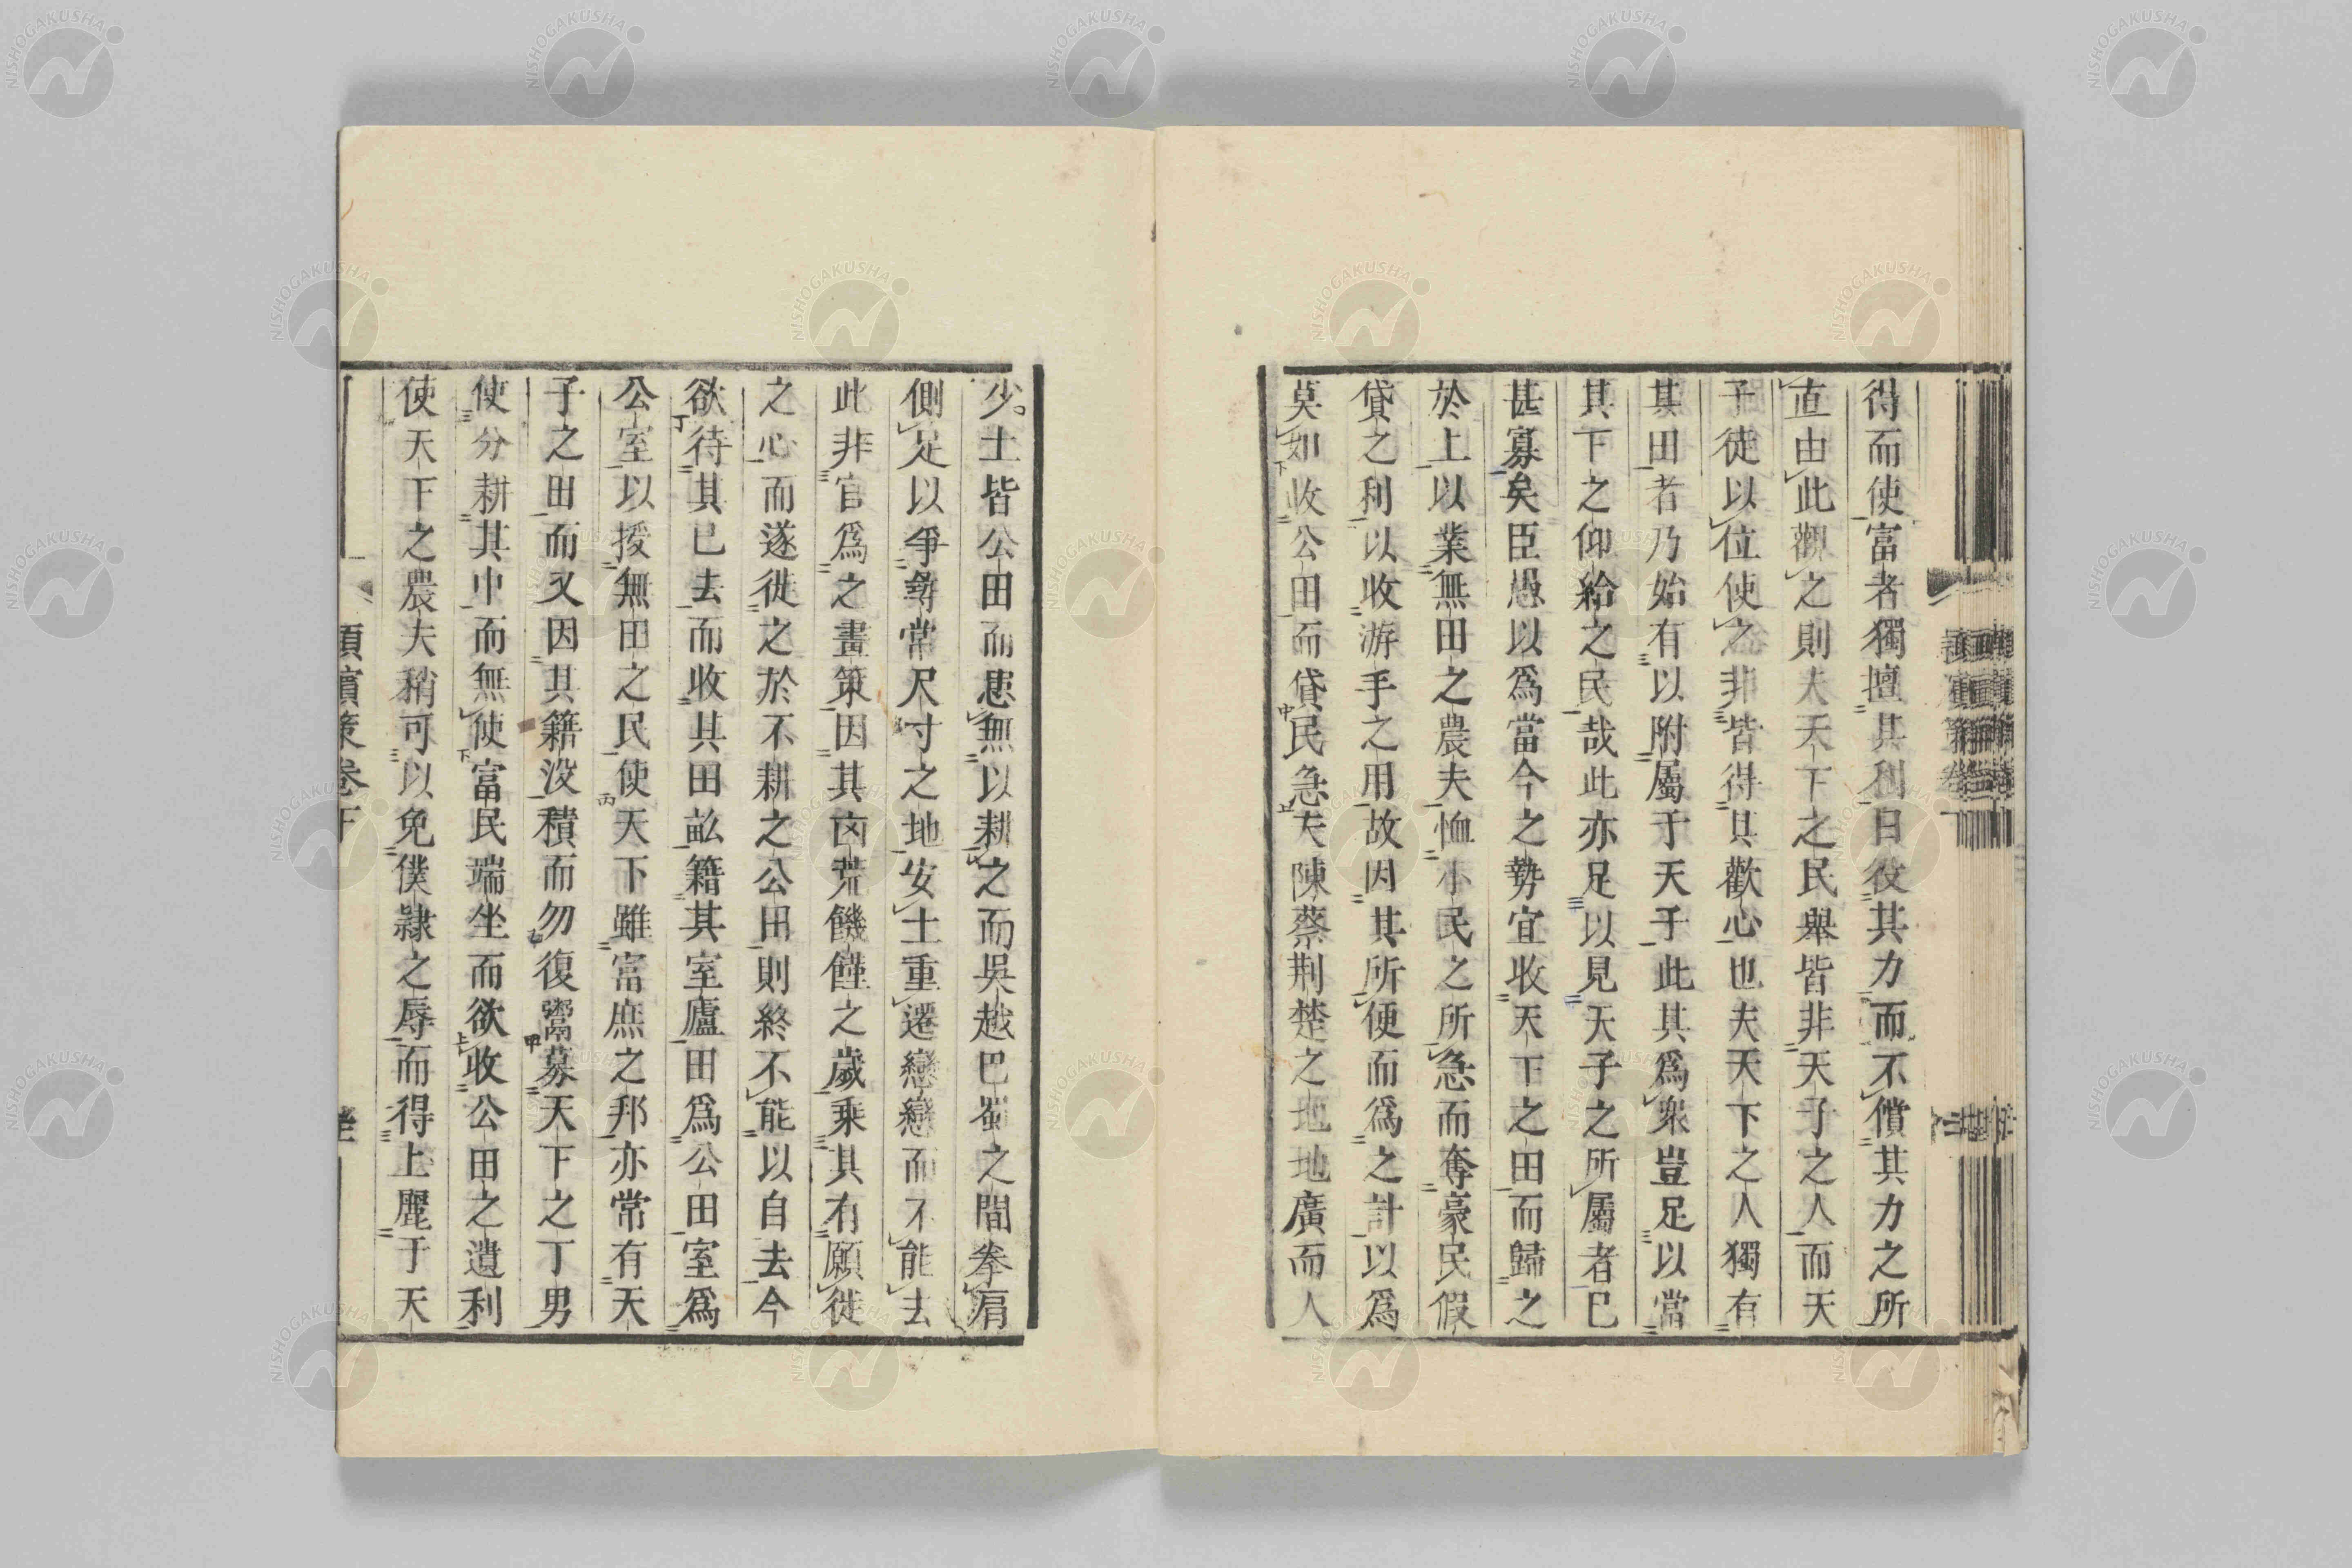 得而使富者獨擅其利日役其力而不償其力之所
直由此觀之則夫天下之民舉皆非天子之人而天
子徒以位使之非皆得其歡心也夫天下之人獨有
其田者乃始有以附屬于天子此其爲衆豈足以當
其下之仰給之民哉此亦足以見天子之所屬者已
甚寡矣臣愚以爲當今之勢宜收天下之田而歸之
於上以業無田之農夫恤小民之所急而奪豪民假
貸之利以收游手之用故因其所便而爲之計以爲
莫如收公田而貸民急夫陳蔡荆楚之地地廣而人
少土皆公田而患無以耕之而吳越巴蜀之間拳肩
側足以爭尋常尺寸之地安土重遷戀戀而不能去
此非官爲之畫策因其凶荒饑饉之歲乘其有願徙
之心而遂徙之於不耕之公田則終不能以自去今
欲待其已去而收其田畝籍其室廬田爲公田室爲
公室以授無田之民使天下雖富庶之邦亦常有天
子之田而又因其籍沒積而勿復鬻募天下之丁男
使分耕其中而無使富民端坐而欲收公田之遺利
使天下之農夫稍可以免僕隷之辱而得上麗于天
頴濱策卷下
NISHOGAKUSHA